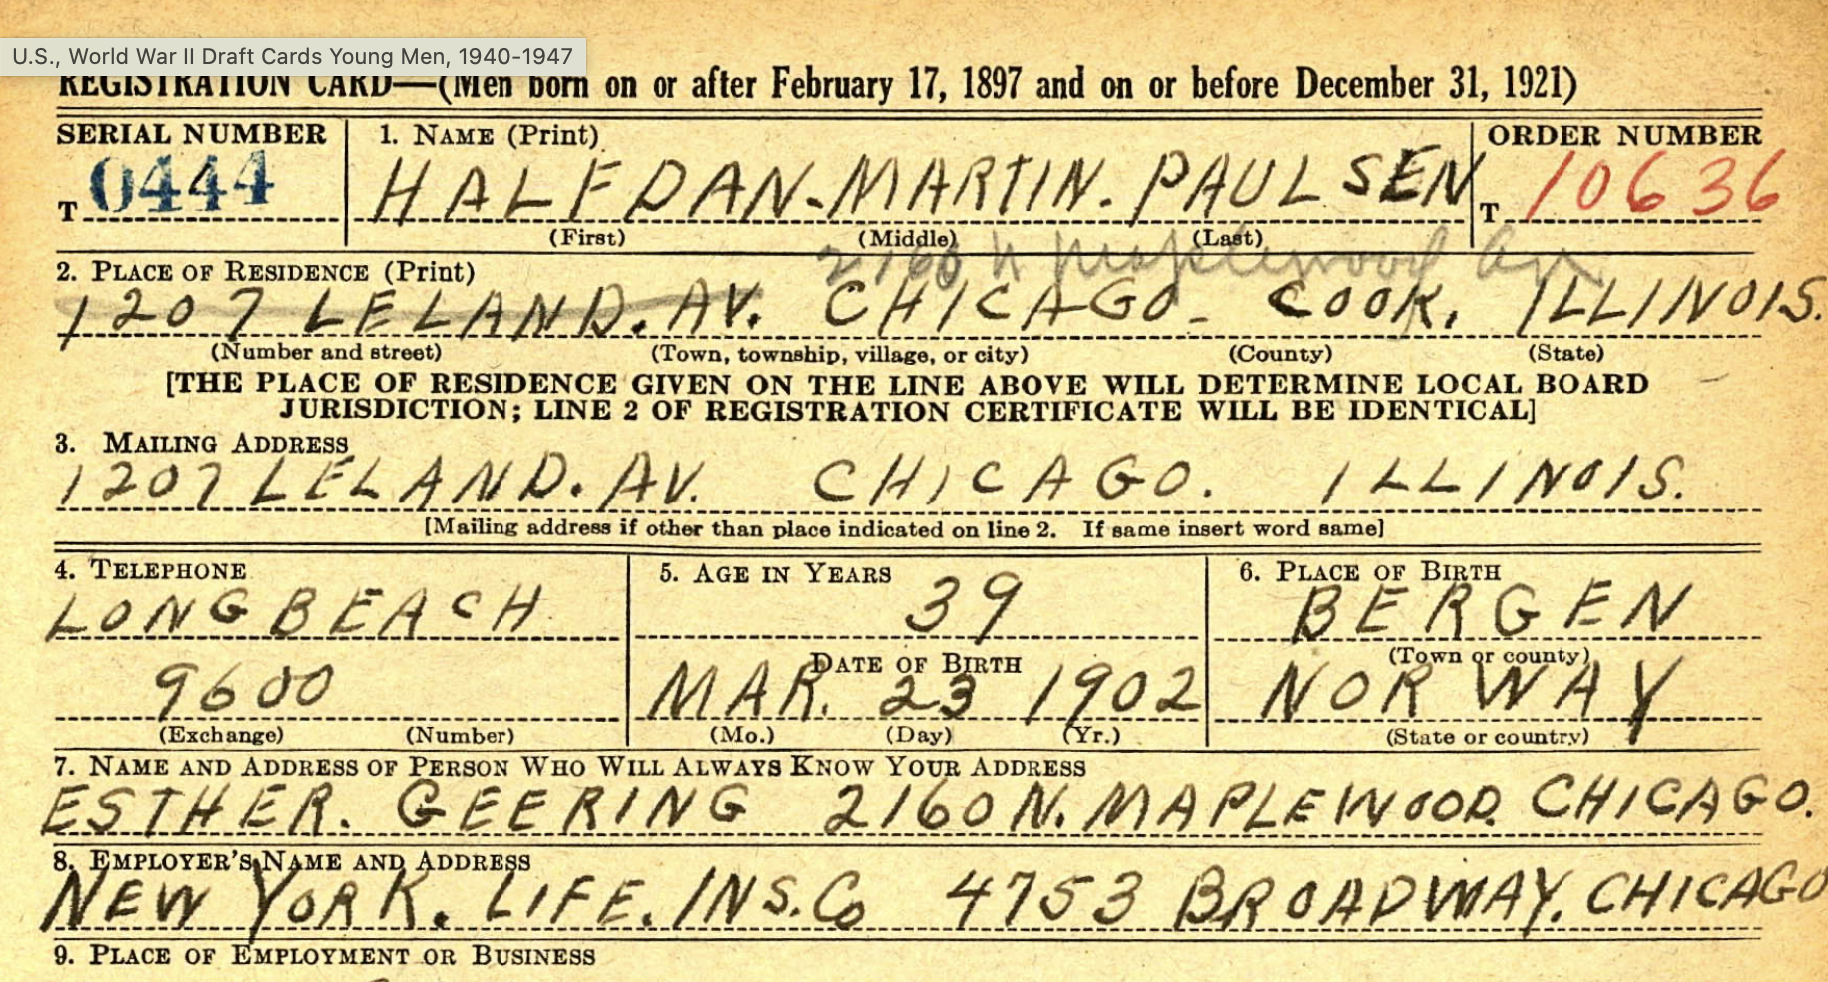 U.S., World War II Draft Cards Young Men, 1940-1947
REGISTRATION CARD—(Men born on or after February 17, 1897 and on or before December 31, 1921)
SERIAL NUMBER
T 0444
1. NAME (Print)
HALFDAN. MARTIN. PAULSEN
(First) (Middle) (Last)
ORDER NUMBER
T 10636
2160 N Maplewood Av
2. PLACE OF RESIDENCE (Print)
1207 LELAND. AV. CHICAGO- COOK. ILLINOIS.
(Number and street) (Town, township, village, or city) (County) (State)
[THE PLACE OF RESIDENCE GIVEN ON THE LINE ABOVE WILL DETERMINE LOCAL BOARD
JURISDICTION; LINE 2 OF REGISTRATION CERTIFICATE WILL BE IDENTICAL]
3. MAILING ADDRESS
1207 LELAND. AV. CHICAGO. ILLINOIS.
[Mailing address if other than place indicated on line 2. If same insert word same]
4. TELEPHONE
LONG BEACH
9600
(Exchange) (Number)
5. AGE IN YEARS
39
DATE OF BIRTH
MAR. 23 1902
(Mo.) (Day) (Yr.)
6. PLACE OF BIRTH
BERGEN
(Town or county)
NORWAY
(State or country)
7. NAME AND ADDRESS OF PERSON WHO WILL ALWAYS KNOW YOUR ADDRESS
ESTHER. GEERING 2160 N. MAPLEWOOD. CHICAGO.
8. EMPLOYER'S NAME AND ADDRESS
NEW YORK. LIFE. INS. Co 4753 BROADWAY. CHICAGO
9. PLACE OF EMPLOYMENT OR BUSINESS